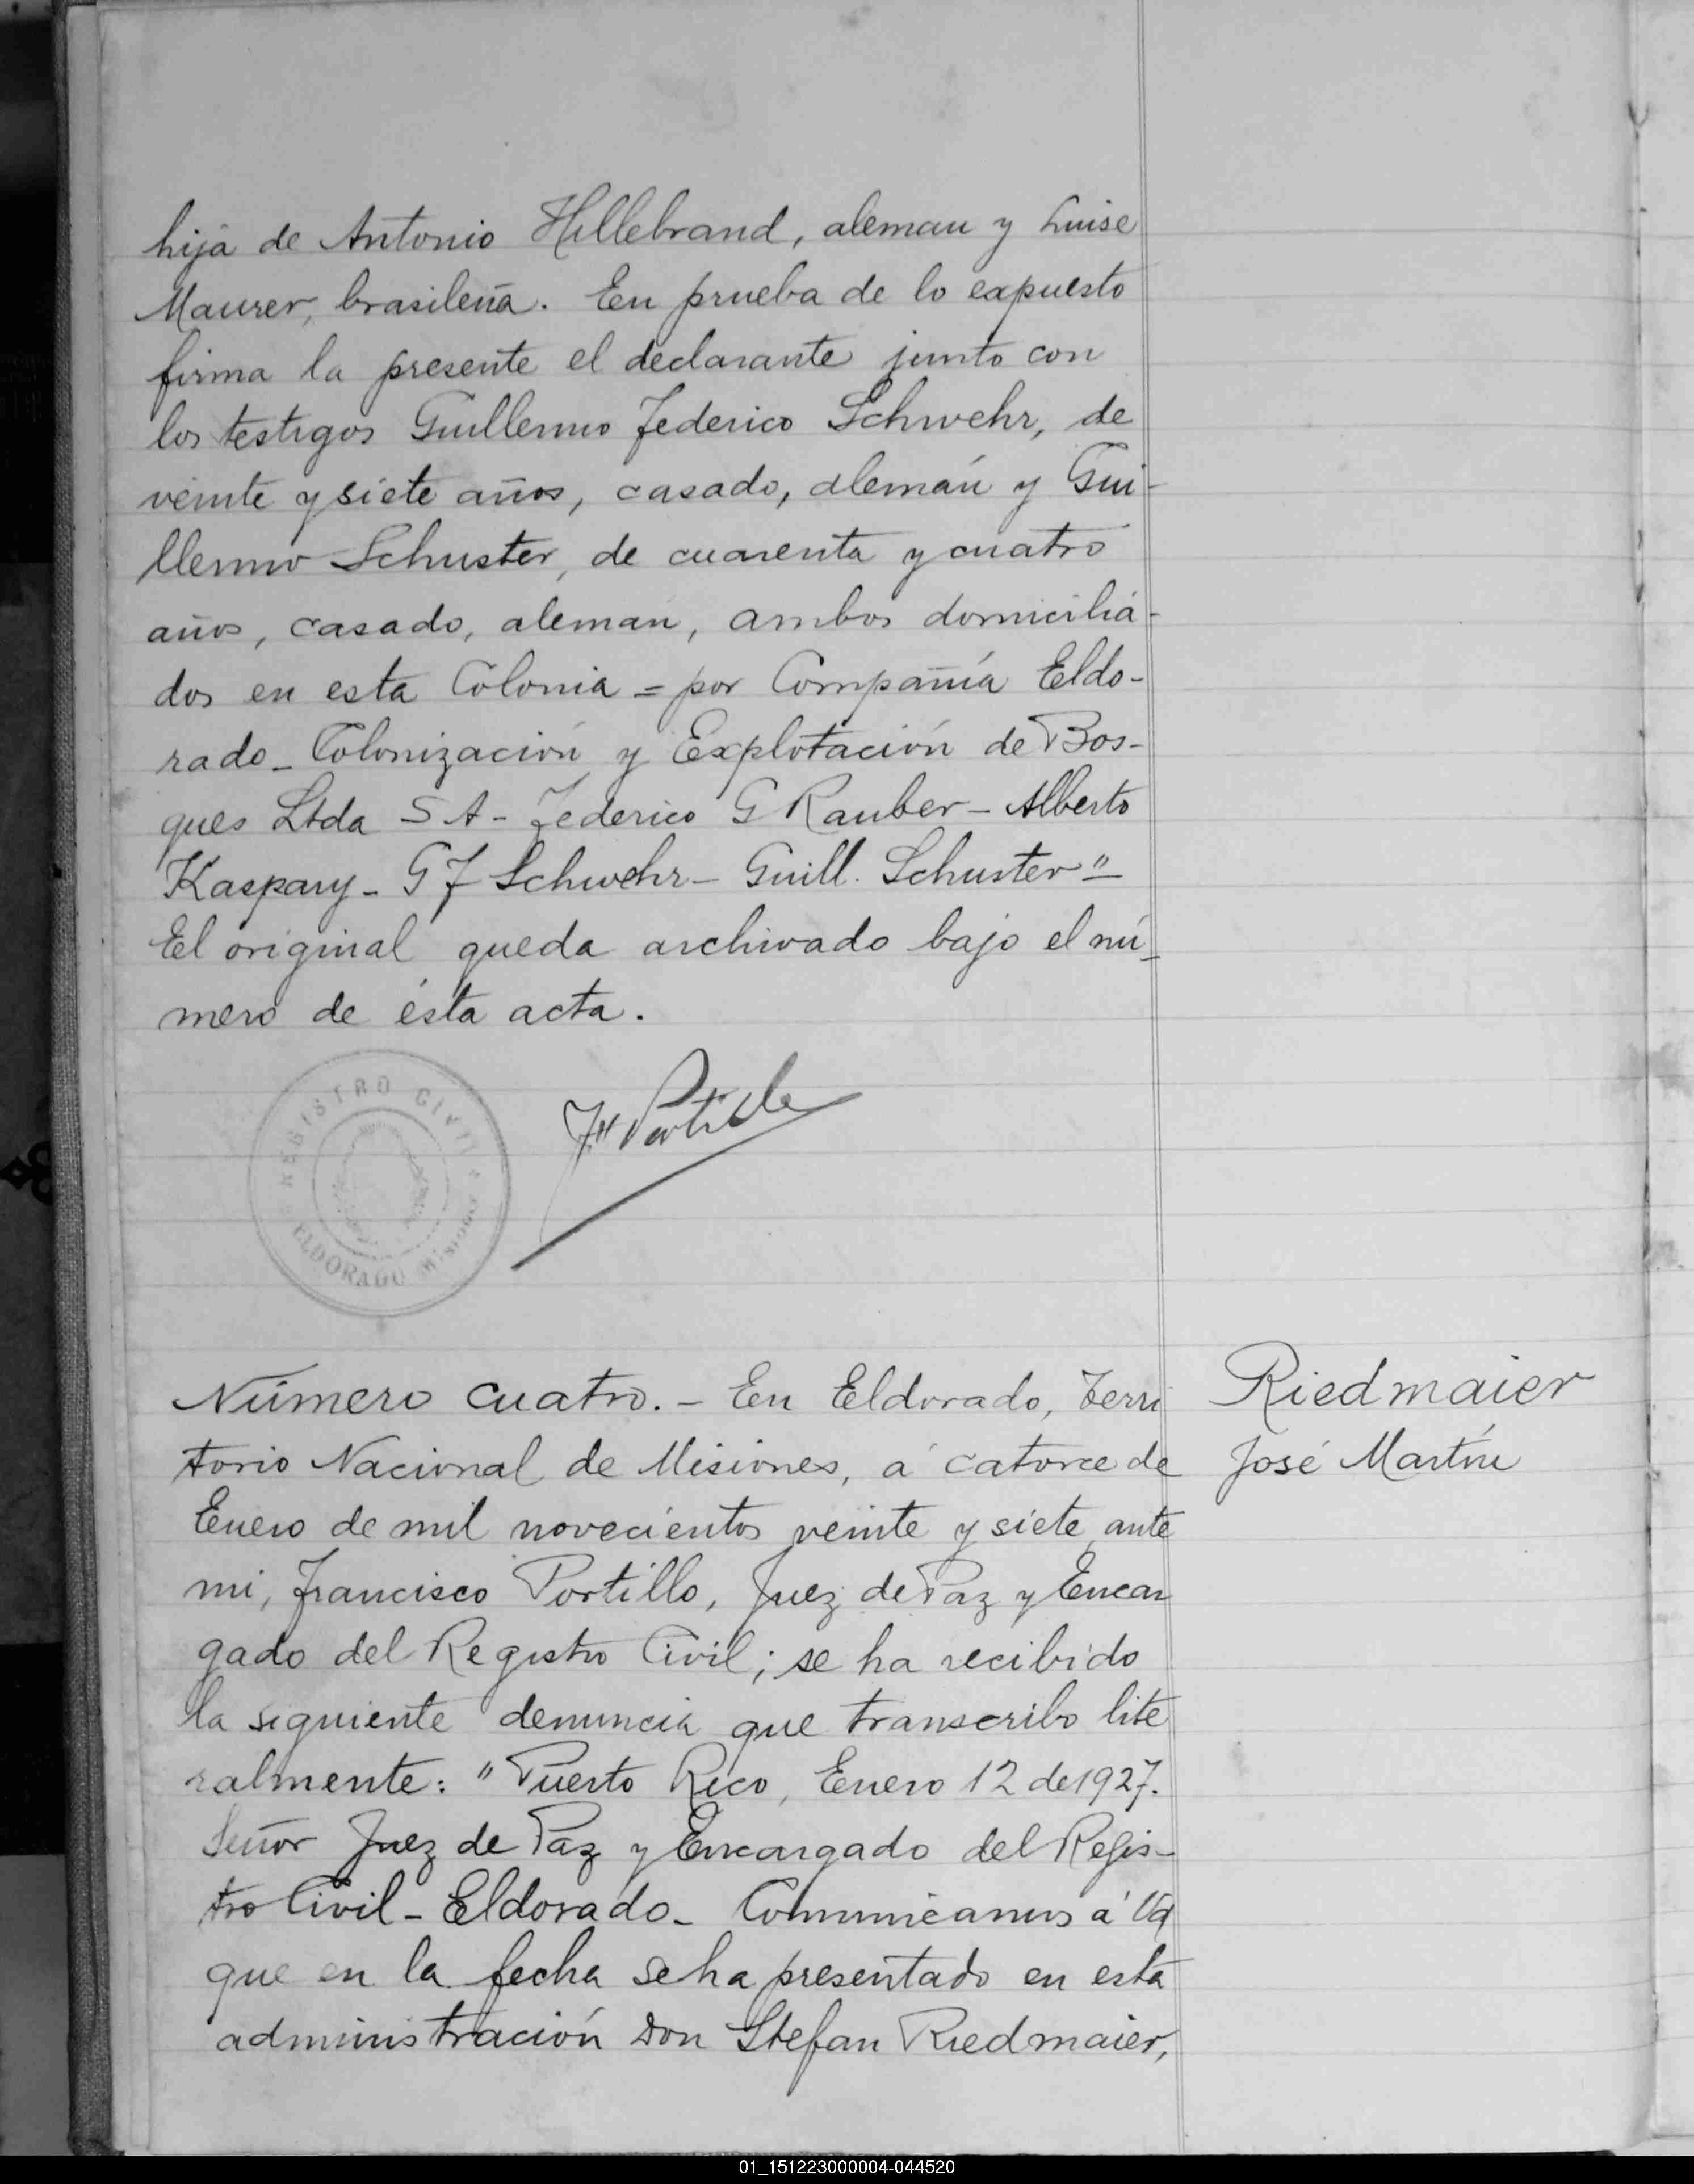 hija de Antonio Hillebrand, aleman y Luise
Maurer, brasileña. En prueba de lo expuesto
firma la presente el declarante junto con
los testigos Guillermo Federico Schwehr, de
veinte y siete años, casado, alemán y Gui-
llermo Schuster, de cuarenta y cuatro
años, casado, aleman, ambos domicilia-
dos en esta Colonia = por Compañía Eldo-
rado_Colonización y Explotación de Bos-
ques Ltda S A - Federico G Rauber - Alberto
Kaspary - G F Schwehr - Guill. Schuster" =
El original queda archivado bajo el nú-
mero de ésta acta.
REGISTRO CIVIL
ELDORADO Misiones
Fco Portillo
Número cuatro. - En Eldorado, Terri
torio Nacional de Misiones, á catorce de
Enero de mil novecientos veinte y siete, ante
mi, Francisco Portillo, Juez de Paz y Encar
gado del Registro Civil; se ha recibido
la siguiente denuncia que transcribo lite
ralmente: "Puerto Rico, Enero 12 de 1927.
Señor Juez de Paz y Encargado del Regis-
tro Civil - Eldorado - Comunicamos á Vd
que en la fecha se ha presentado en esta
administración Don Stefan Riedmaier,
Riedmaier
José Martín
01_151223000004-044520